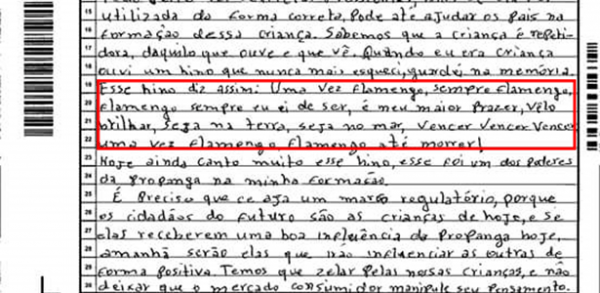 15 utilizada da forma correta, Pode até ajudar os pais na
16 formação dessa criança. Sabemos que a criança é repeti-
17 dora, daquilo que ouve e que vê. Quando eu era criança
18 ouvi um hino que nunca mais esqueci, guardei na memória.
19 Esse hino diz assim: Uma vez flamengo, sempre flamengo,
20 flamengo sempre eu ei de ser, é meu maior Prazer, velo
21 brilhar, seja na terra, seja no mar, Vencer Vencer Vencer
22 uma vez Flamengo, Flamengo até morrer!
23 Hoje ainda canto muito esse hino, esse foi um dos poderes
24 da Propanga na minha formação.
25 É Preciso que ce aja um marco regulatório, porque
26 os cidadãos do futuro são as crianças de hoje, e se
27 elas receberem uma boa influência da Propanga hoje,
28 amanhã serão elas que irão influenciar as outras de
29 forma Positiva. Temos que zelar Pelas nossas crianças, e não
30 deixar que o mercado consumidor manipule seu Pensamento.